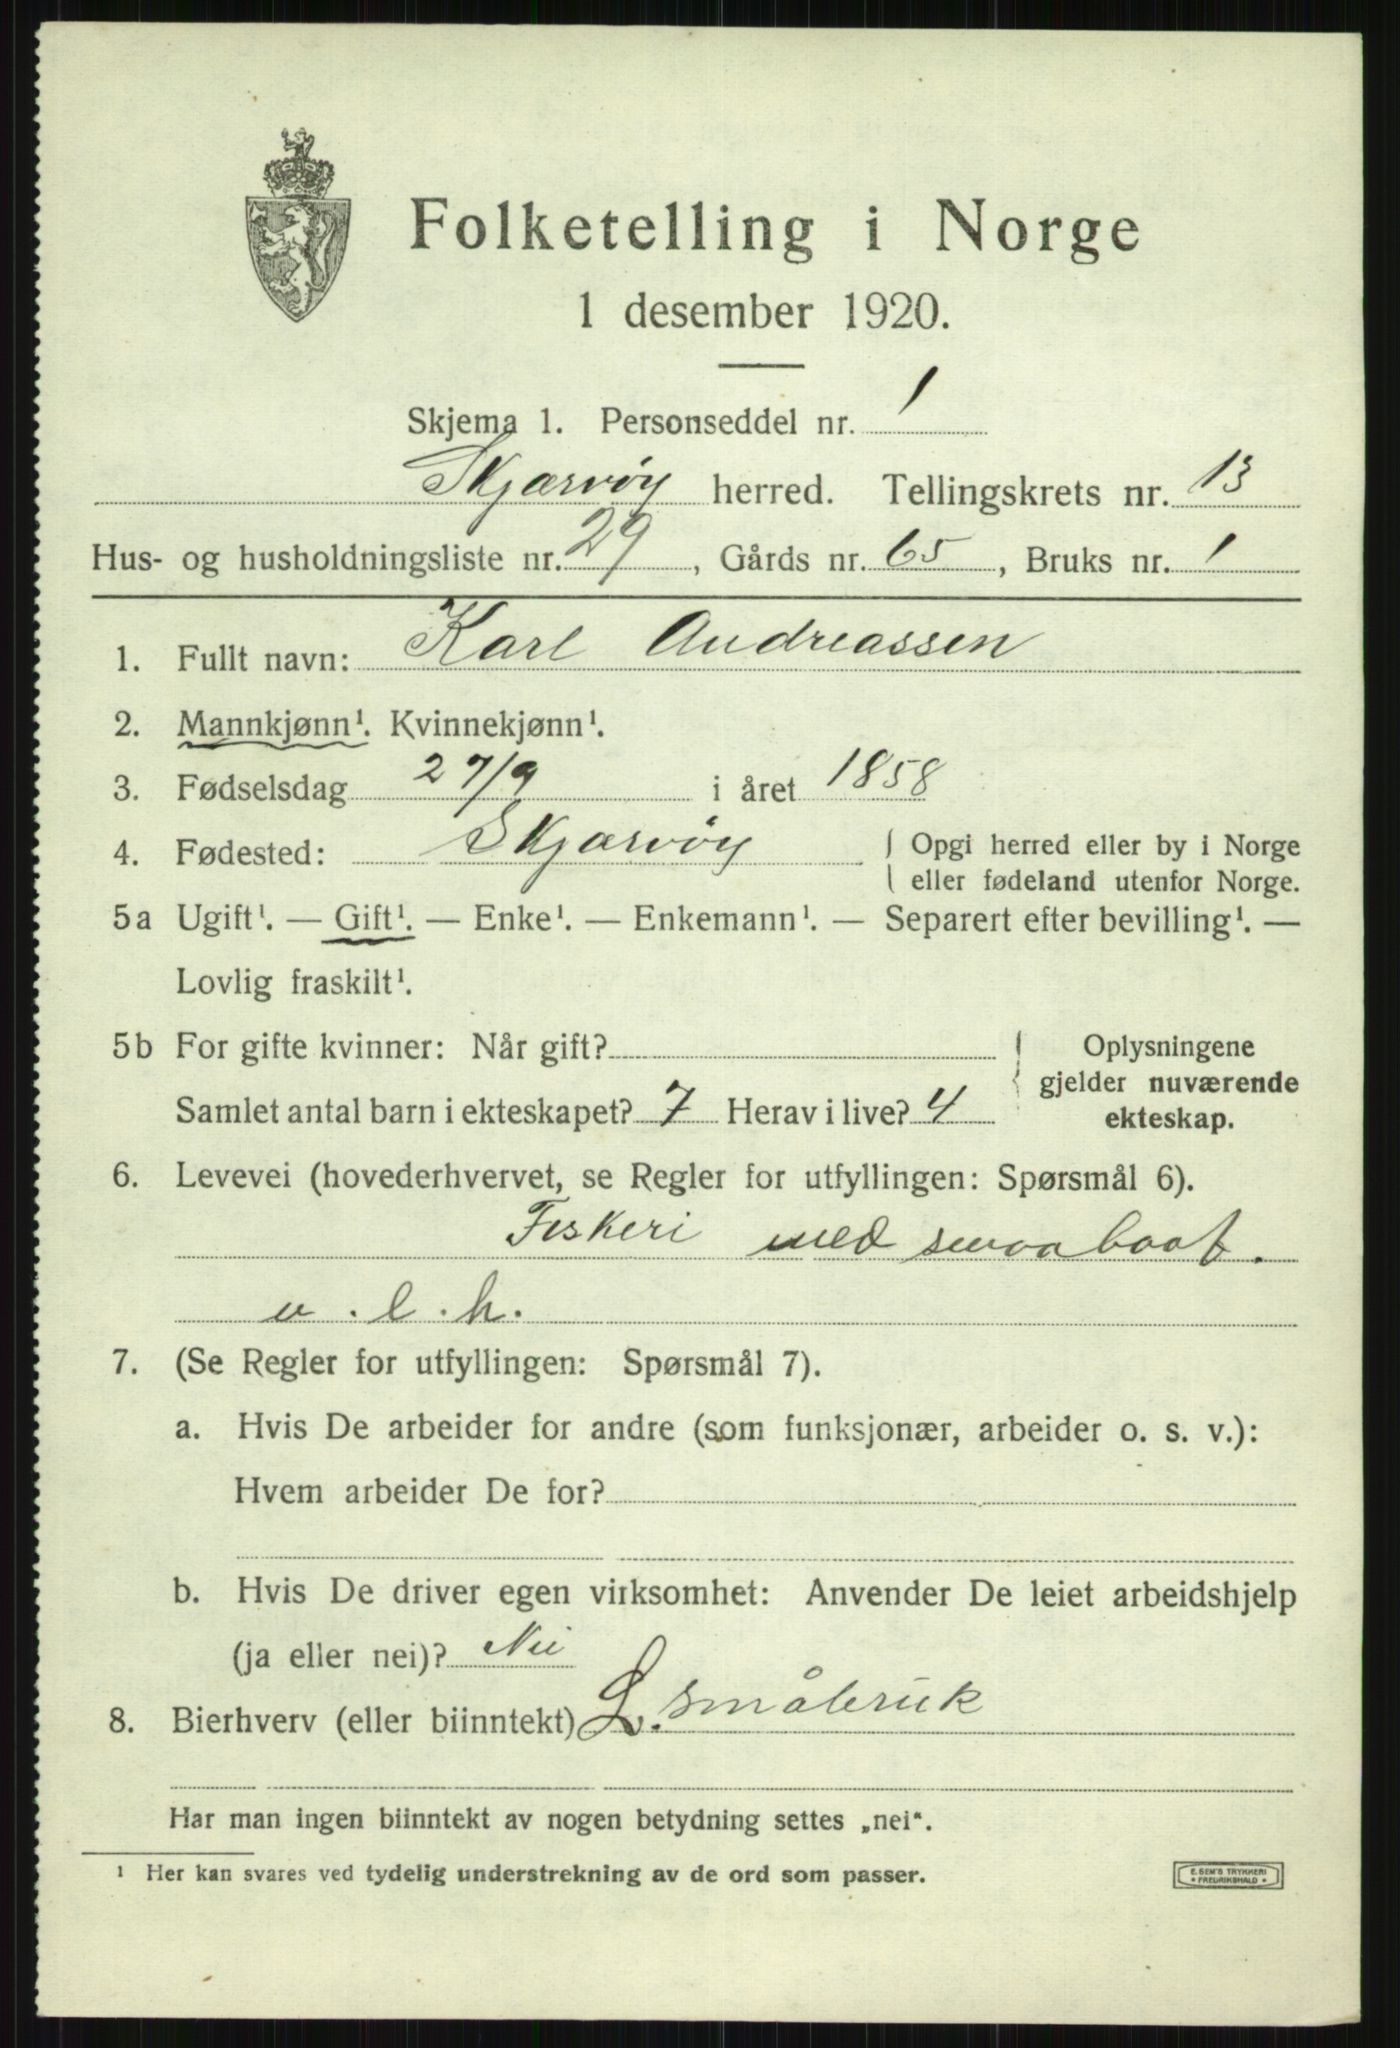 Folketelling i Norge
1 desember 1920.
Skjema 1. Personseddel nr. 1
Skjærvøy herred. Tellingskrets nr. 13
Hus- og husholdningsliste nr. 29, Gårds nr. 65, Bruks nr. 1
1. Fullt navn: Karl Andreassen
2. Mannkjønn¹. Kvinnekjønn¹.
3. Fødselsdag 27/9 i året 1858
4. Fødested: Skjærvøy { Opgi herred eller by i Norge
eller fødeland utenfor Norge.
5a Ugift¹. — Gift¹. — Enke¹. — Enkemann¹. — Separert efter bevilling¹. —
Lovlig fraskilt¹.
5b For gifte kvinner: Når gift? } Oplysningene
gjelder nuværende
Samlet antal barn i ekteskapet? 7 Herav i live? 4 ekteskap.
6. Levevei (hovederhvervet, se Regler for utfyllingen: Spørsmål 6).
Fiskeri med smaabaat.
u. l. h.
7. (Se Regler for utfyllingen: Spørsmål 7).
a. Hvis De arbeider for andre (som funksjonær, arbeider o. s. v.):
Hvem arbeider De for?
b. Hvis De driver egen virksomhet: Anvender De leiet arbeidshjelp
(ja eller nei)? Nei
8. Bierhverv (eller biinntekt) L. småbruk
Har man ingen biinntekt av nogen betydning settes „nei“.
¹ Her kan svares ved tydelig understrekning av de ord som passer.
E. SEM'S TRYKKERI
• FREDRIKSHALD •